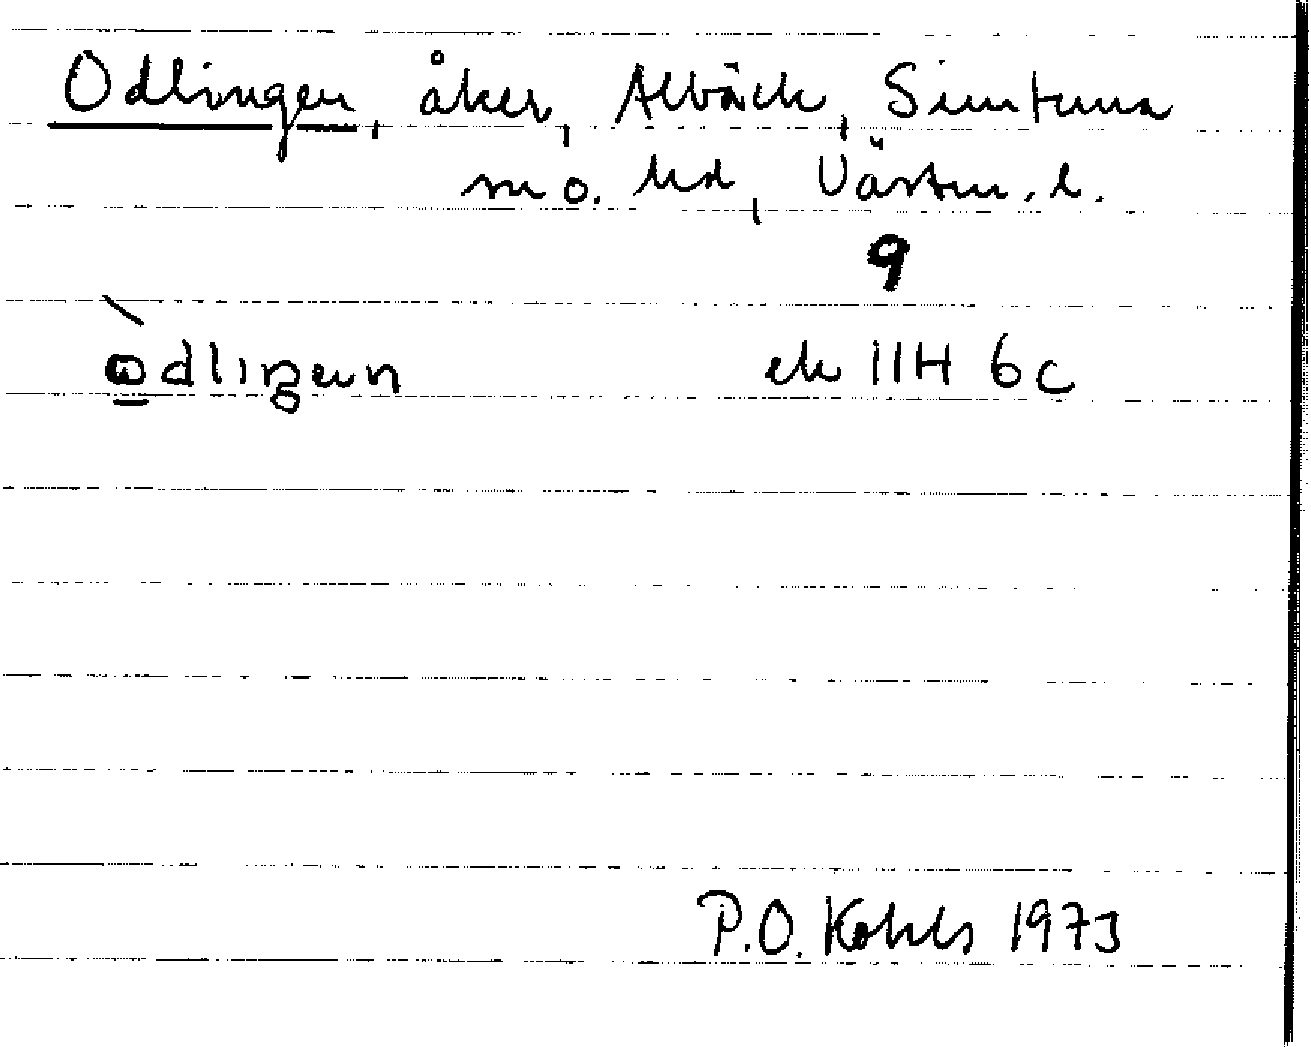 Odlingen, åker, Albäck, Simtuna
sn o. hd, Västm. l.
9
ek 11H 6c
P.O. Kohls 1973